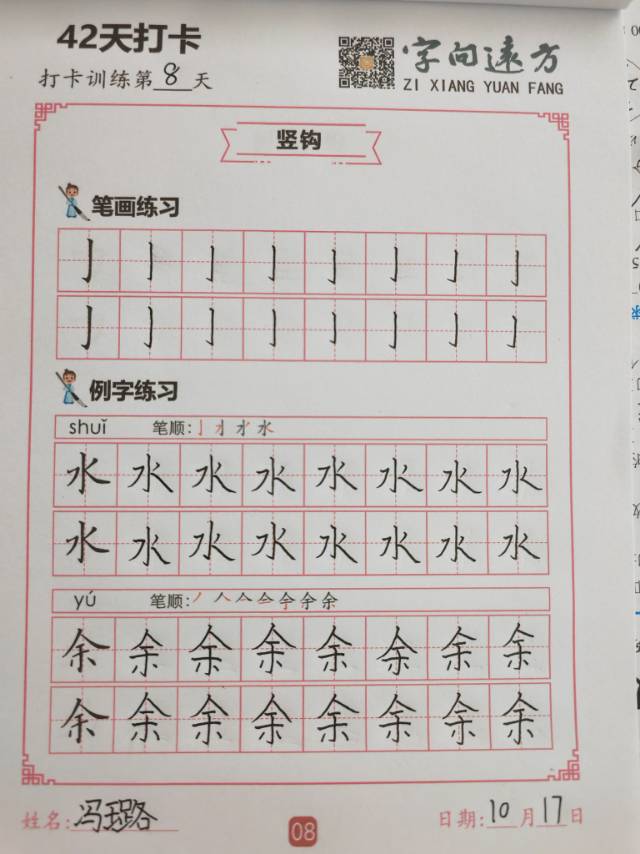 42天打卡
打卡训练第8天
字向远方
ZI XIANG YUAN FANG
竖钩
笔画练习
亅亅亅亅亅亅亅亅
亅亅亅亅亅亅亅亅
例字练习
shuǐ 笔顺:
水水水水水水水水
水水水水水水水水
yú 笔顺:
余余余余余余余余
余余余余余余余余
姓名:冯路
08
日期:10月17日